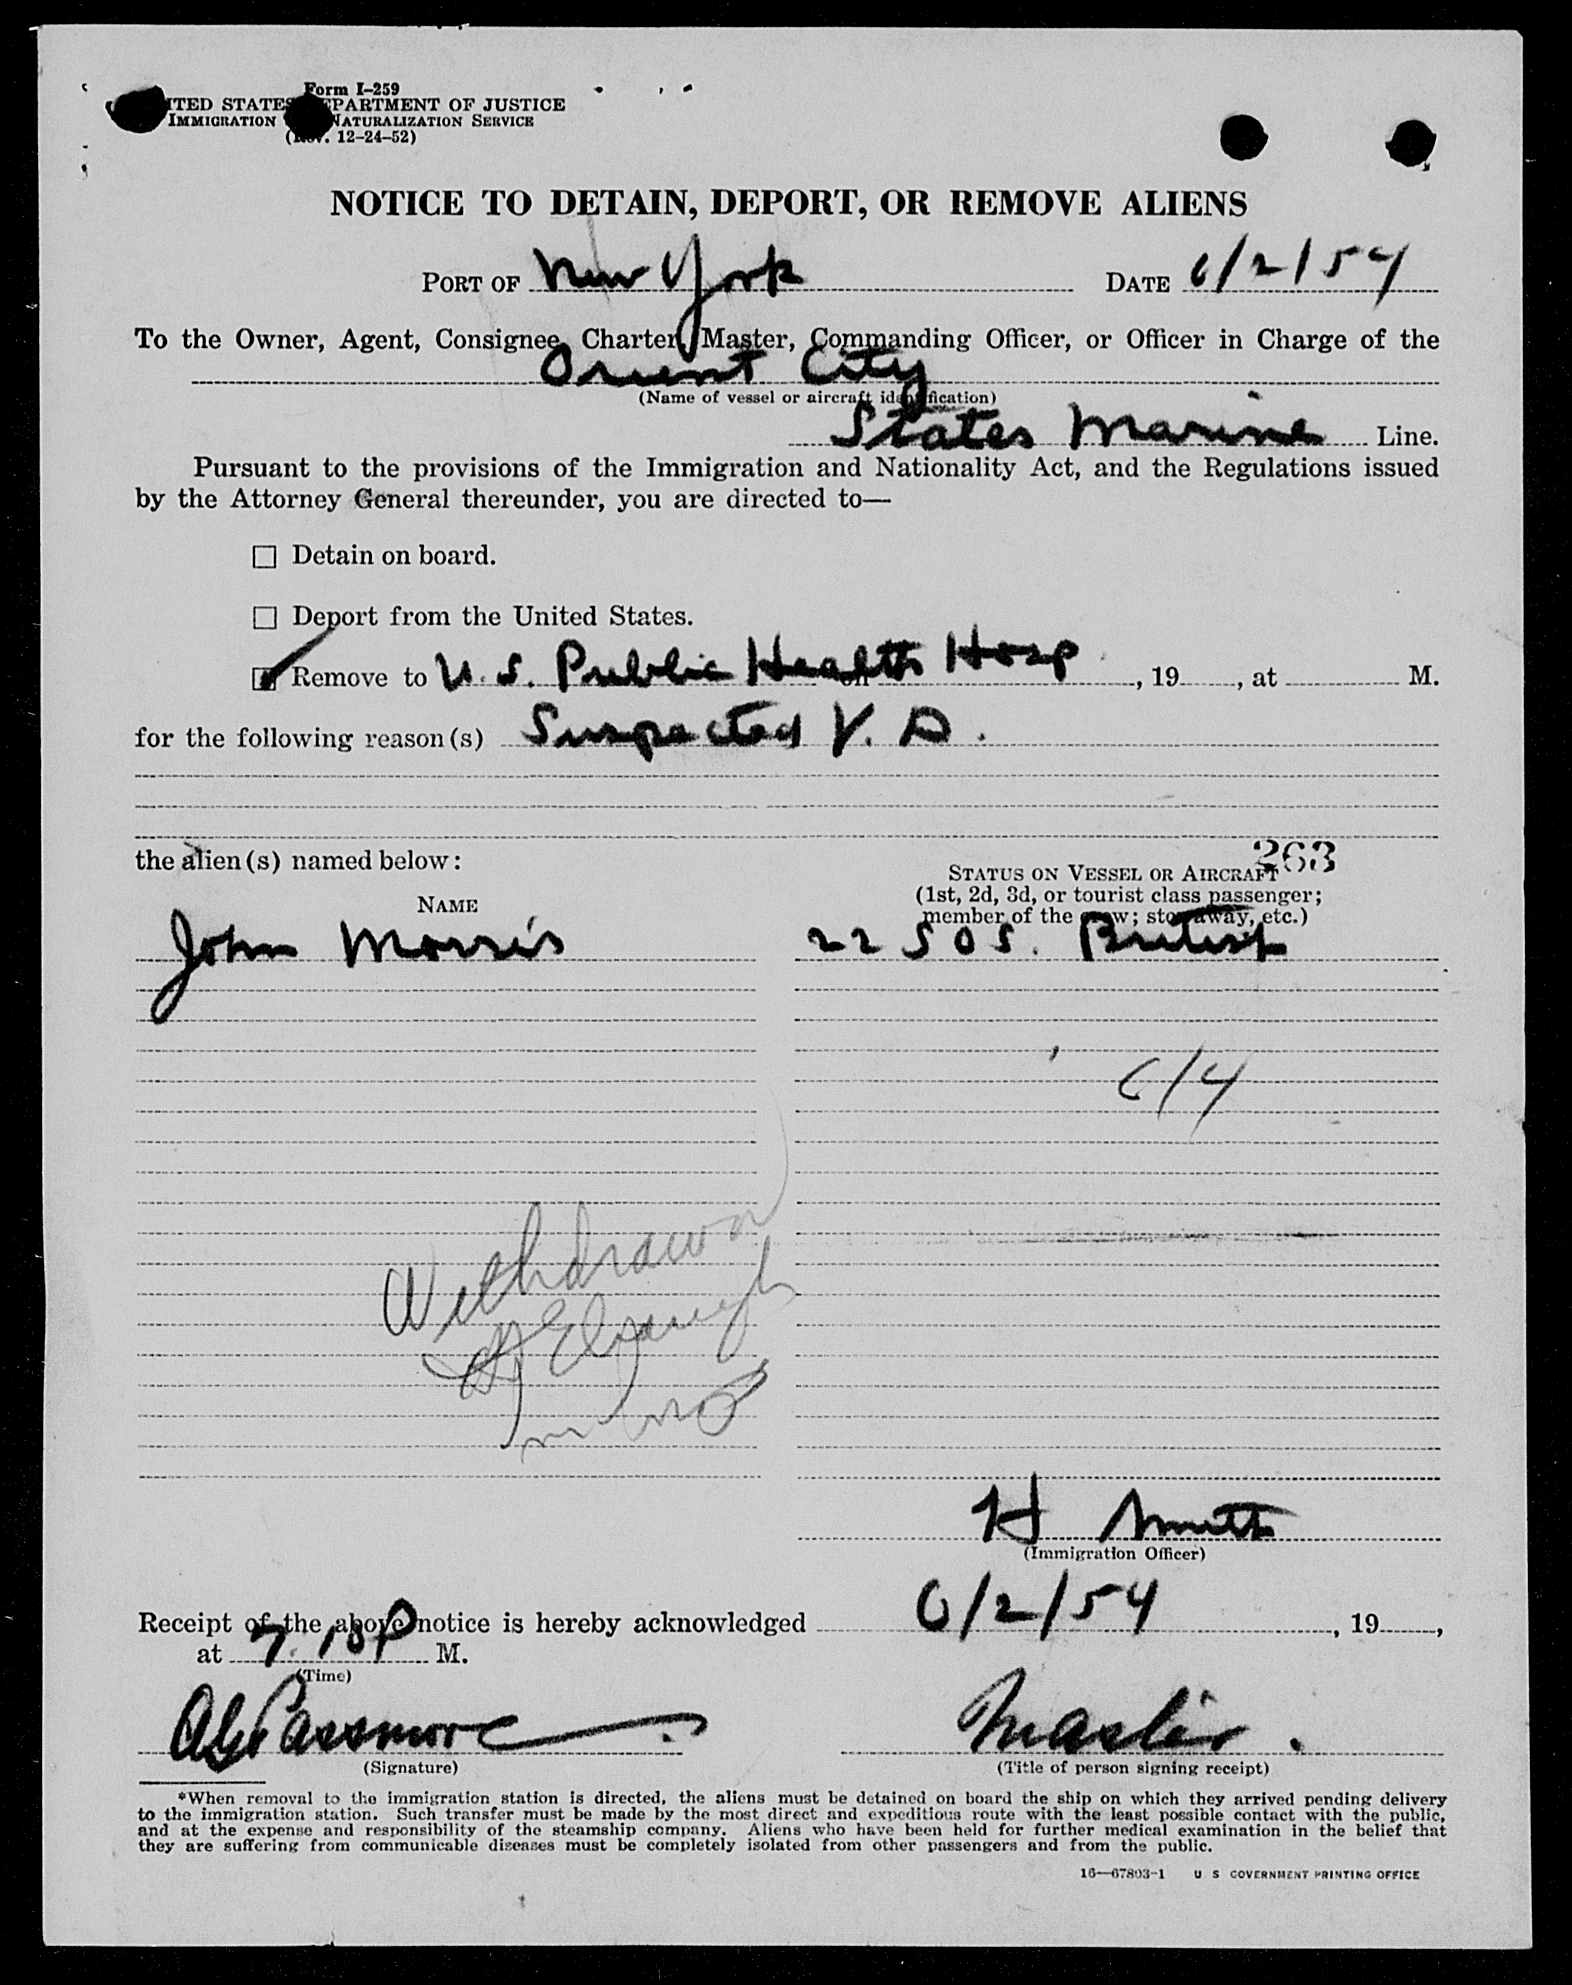 Form I-259
ITED STATES PARTMENT OF JUSTICE
IMMIGRATION NATURALIZATION SERVICE
12-24-52)
NOTICE TO DETAIN, DEPORT, OR REMOVE ALIENS
PORT OF New York DATE 6/2/54
To the Owner, Agent, Consignee, Charter, Master, Commanding Officer, or Officer in Charge of the
Orient City
(Name of vessel or aircraft identification)
States Marine Line.
Pursuant to the provisions of the Immigration and Nationality Act, and the Regulations issued
by the Attorney General thereunder, you are directed to—
☐ Detain on board.
☐ Deport from the United States.
☑ Remove to U. S. Public Health Hosp on , 19 , at M.
for the following reason(s) Suspected V. D.
the alien(s) named below:
263
NAME
STATUS ON VESSEL OR AIRCRAFT
(1st, 2d, 3d, or tourist class passenger;
member of the crew; stowaway, etc.)
John Morris 22 SOS. British
6/4
Withdrawn
H Smith
(Immigration Officer)
Receipt of the above notice is hereby acknowledged 6/2/54 , 19 ,
at 7.10 P M.
(Time)
Passmore Master.
(Signature) (Title of person signing receipt)
*When removal to the immigration station is directed, the aliens must be detained on board the ship on which they arrived pending delivery
to the immigration station. Such transfer must be made by the most direct and expeditious route with the least possible contact with the public,
and at the expense and responsibility of the steamship company. Aliens who have been held for further medical examination in the belief that
they are suffering from communicable diseases must be completely isolated from other passengers and from the public.
16—67803-1 U S GOVERNMENT PRINTING OFFICE